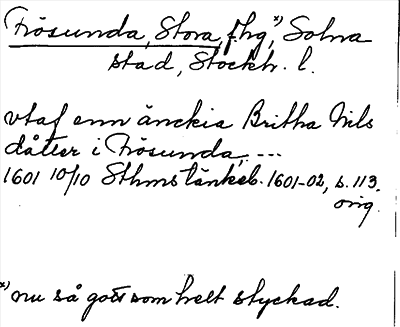 Frösunda, Stora, f. hg,*) Solna
stad, Stockh. l.
vtaf enn änckia Britha Nils
dåtter i Frösunda, ---
1601 10/10 Sthms tänkeb. 1601-02, s. 113.
orig.
*) nu så gott som helt styckad.